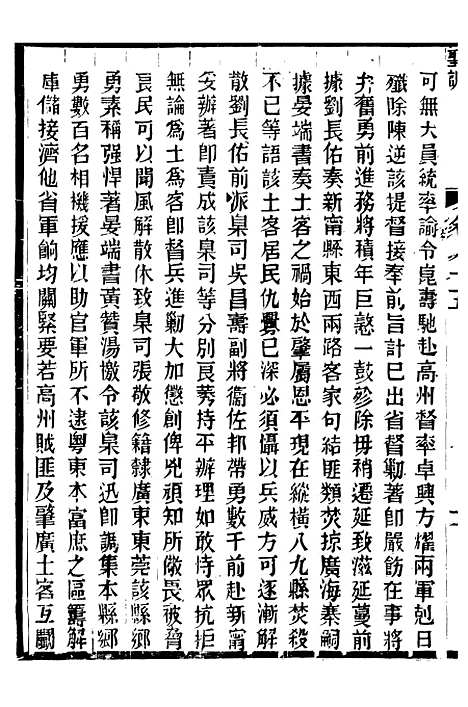 可無大員統率諭令崑壽馳赴高州督率卓興方燿兩軍剋日
殲除陳逆該提督接奉前旨計已出省督勦著卽嚴飭在事將
弁奮勇前進務將積年巨憝一鼓殄除毋稍遷延致滋延蔓前
據劉長佑奏新甯縣東西兩路客家句結匪類焚掠廣海寨嗣
據晏端書奏土客之禍始於肇屬恩平現在縱橫八九縣焚殺
不已等語該土客居民仇釁已深必須懾以兵威方可逐漸解
散劉長佑前派臬司吳昌壽副將衞佐邦帶勇數千前赴新甯
妥辦著卽責成該臬司等分別良莠持平辦理如敢恃眾抗拒
無論爲土爲客卽督兵進勦大加懲創俾兇頑知所儆畏被脅
良民可以聞風解散休致臬司張敬修籍隸廣東東莞該縣鄉
勇素稱强悍著晏端書黃贊湯檄令該臬司迅卽調集本縣鄉
勇數百名相機援應以助官軍所不逮粵東本富庶之區籌解
庫儲接濟他省軍餉均關緊要若高州賊匪及肇廣土客互鬭